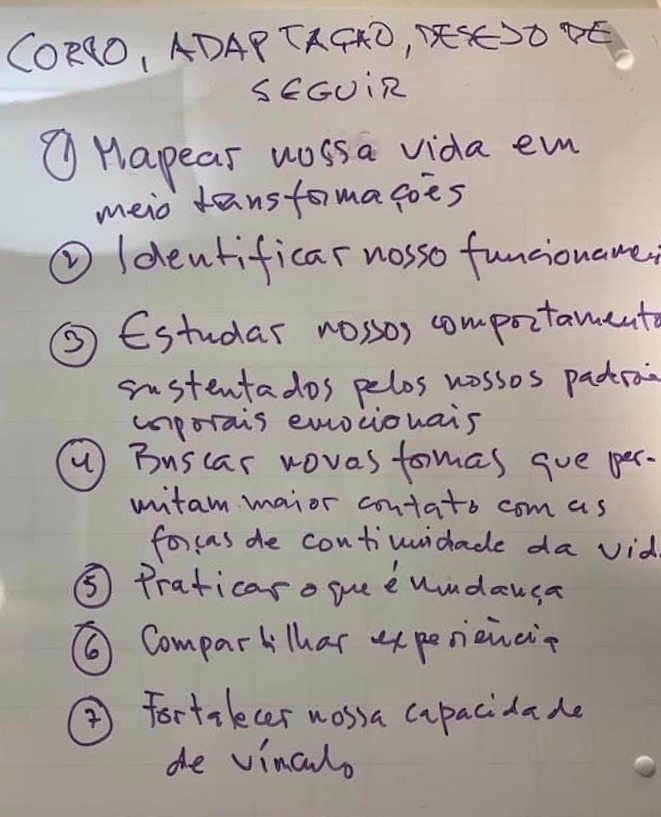 CORPO, ADAPTAÇÃO, DESEJO DE
SEGUIR
① Mapear nossa vida em
meio transformações
② Identificar nosso funcionamen
③ Estudar nossos comportamento
sustentados pelos nossos padrõe
corporais emocionais
④ Buscar novas formas que per-
mitam maior contato com as
forças de continuidade da vida
⑤ Praticar o que é mudança
⑥ Compartilhar experiência
⑦ Fortalecer nossa capacidade
de vínculo